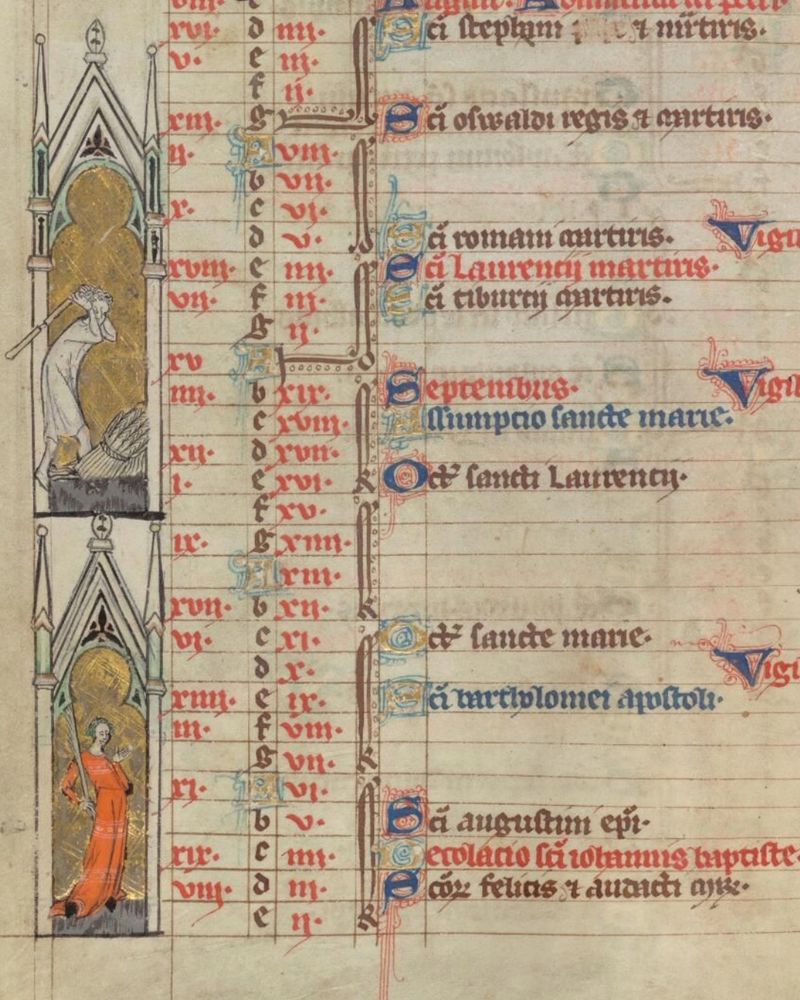 xvi. d iiii. Sci stephani & mrtiris.
v. e iii.
f ii.
xiii. g Sci oswaldi regis & martiris.
ii. A viii.
b vii.
x. c vi.
d v. Sci romani martiris. Vigil
xviii. e iiii. Sci Laurencij martiris.
vii. f iii. Sci tiburcij martiris.
g ii.
xv A
iiii. b xix. Septembris. Vigil
c xviii. Assumpcio sancte marie.
xii. d xvii.
i. e xvi. k Oct' sancti Laurencij.
f xv.
ix. g xiiii.
A xiii.
xvii. b xii. k
vi. c xi. Oct' sancte marie.
d x. Vigi
xiiii. e ix. Sci bartholomei apostoli.
iii. f viii.
g vii. k
xi. A vi.
b v. Sci augustini epi.
xix. c iiii. Decolacio sci iohannis baptiste.
viii. d iii. Scor felicis & audacti
e ii. k